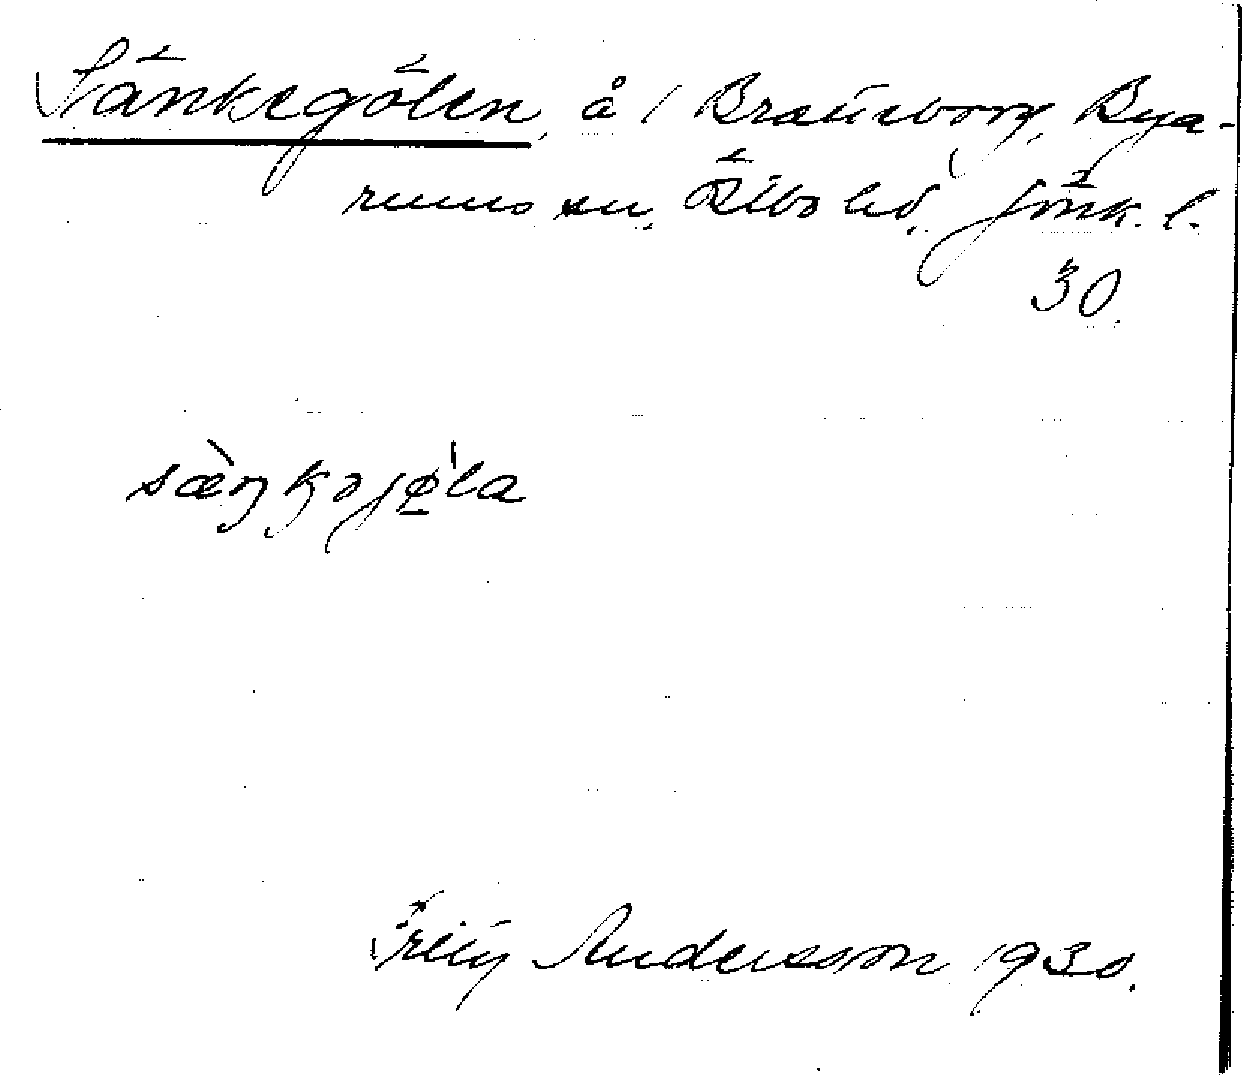 Sänkegölen, å / Brauneborg, Bya-
rums sn. Östbo hd. Jönk. l.
30.
sæ̀ŋkəjø̱̍la
Andersson 1930.